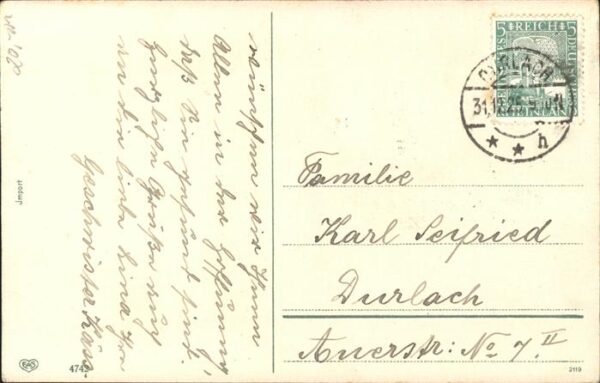 wünschen wir Ihnen
Allen in der Hoffnung,
daß Sie gesund sind.
Herzliche Grüße auch
an den liebe
Geschwister
Import
474
2119
5 REICH 5
DURLACH
31.12.25.
* * h
Familie
Karl Seifried
Durlach
Auerstr: No 7 II